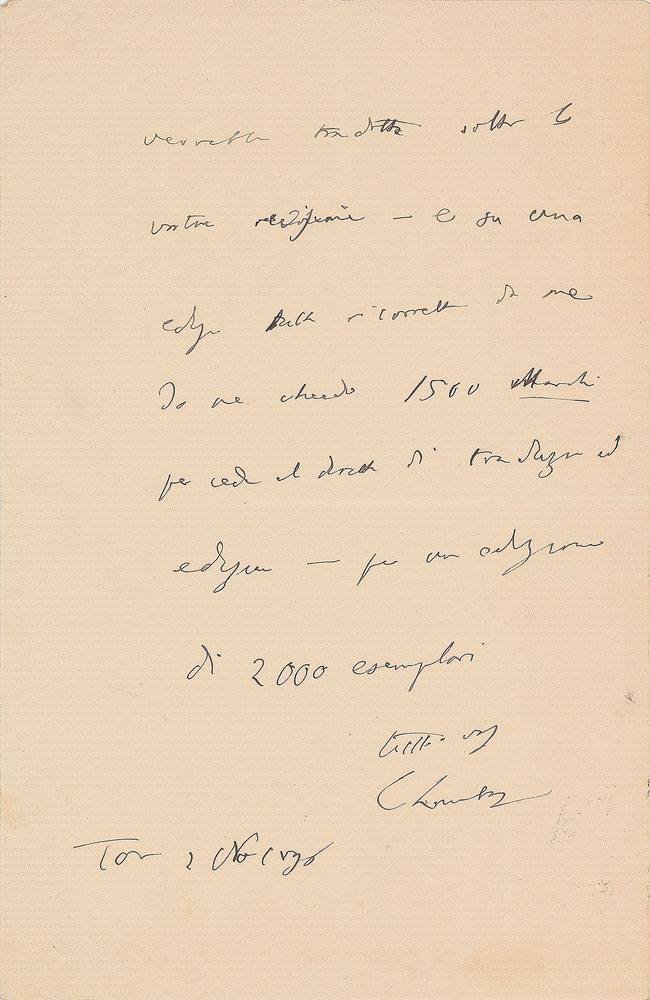 verrebbe tradotta sotto la
vostra revisione — e su una
edizn tutta ricorretta da me
Io ne chiedo 1500 Marchi
per ceder il diritto di traduzn ed
edizne — per un edizione
di 2000 esemplari
tutto vos
C Lombroso
Tor 2